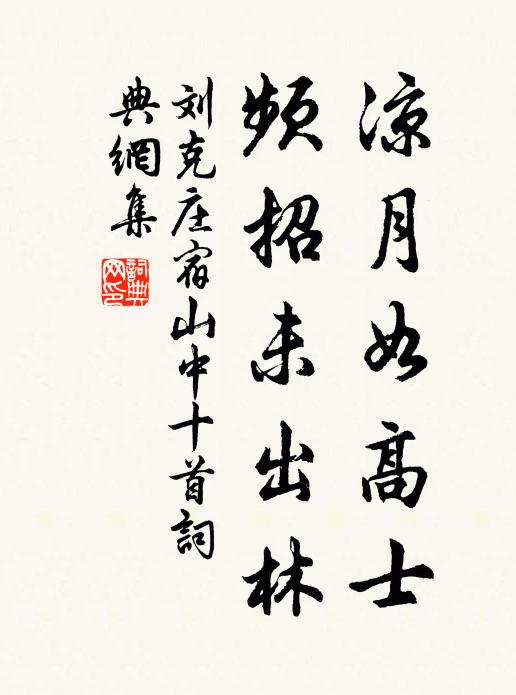 凉月如高士
频招未出林
刘克庄宿山中十首詞
典網集
詞典
网印